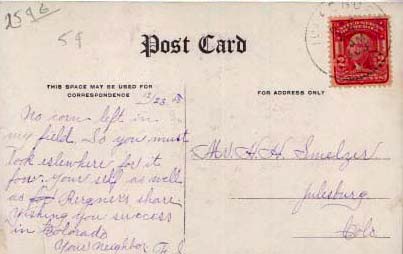 2596
59
Post Card
THIS SPACE MAY BE USED FOR
CORRESPONDENCE
FOR ADDRESS ONLY
12/23 08
No corn left in
my field. So you must
look eslewhere for it
for your self as well
as Bergner's share.
Wishing you success
in Colorado
Your Neighbor F.
Mr H. H. Smelzer
Julesburg
Colo